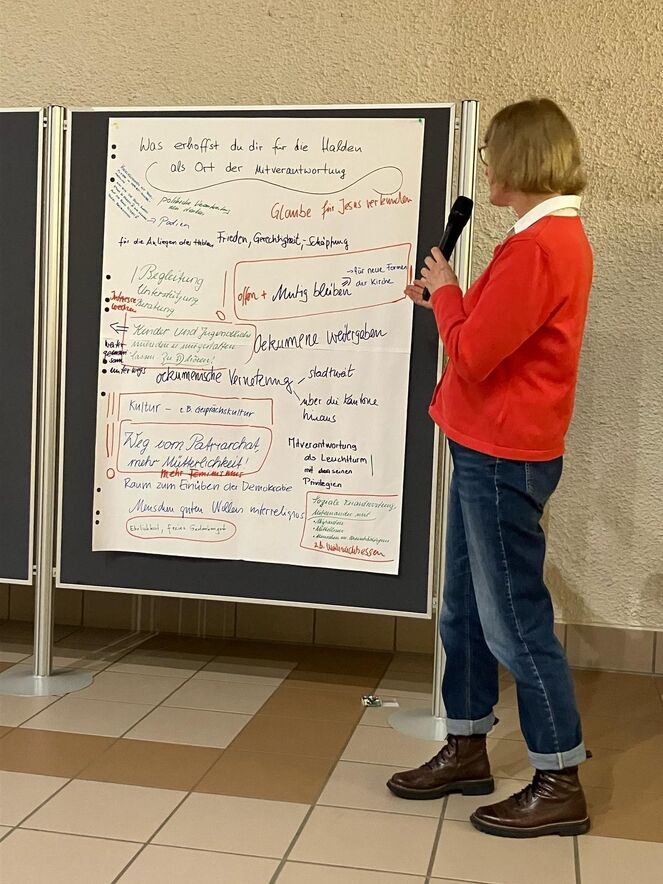 Was erhoffst du dir für die Halden
als Ort der Mitverantwortung
politische
→ Podien
Glaube für Jesus verkünden
für die Anliegen des Haldens Frieden, Gerechtigkeit, -Schöpfung
Begleitung
Unterstützung
Beratung
offen + Mutig bleiben
→ für neue Formen
der Kirche
Kinder und Jugendliche
lassen zu
Oekumene weitergeben
unterwegs
ökumenische Vernetzung
stadtweit
über die Kantone
hinaus
Kultur – z.B. Gesprächskultur
Weg vom Patriarchat,
mehr Mütterlichkeit!
mehr Feminismus
Mitverantwortung
als Leuchtturm
mit
seinen
Privilegien
Raum zum Einüben der Demokratie
Menschen guten Willens interreligiös
Ehrlichkeit, freies Gedankengut
Soziale Verantwortung,
Miteinander mit
• Migranten
z.B. Weihnachtsessen